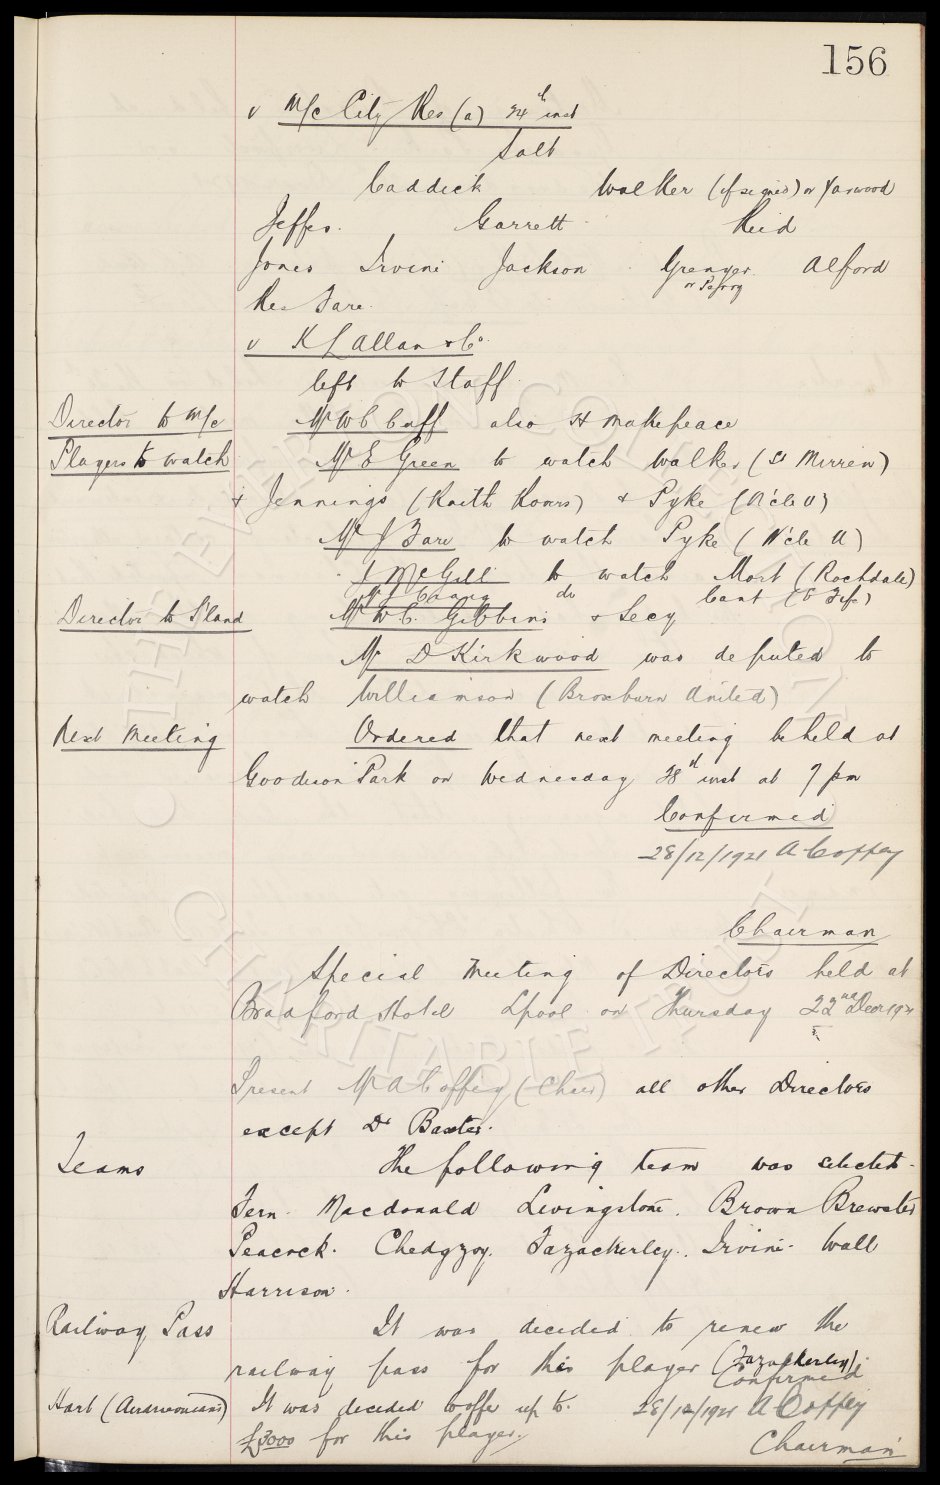 156
v M/c City Res (a) 24th inst
Salt
Caddick Walker (if signed) or Yarwood
Jeffs. Garrett Reid
Jones Irvine Jackson Grenyer Alford
Res Fare.
v K L Allan & Co
left to Staff.
Director to M/c Mr W C Cuff also H Makepeace
Players to watch Mr E Green to watch Walker (St Mirren)
& Jennings (Raith Rovers) & Pyke (N'cle U)
Mr J Fare to watch Pyke (N'cle U)
J McGill to watch Mort (Rochdale)
do Cant (E Fife)
Director to S'land Mr W C. Gibbins & Secy
Mr D Kirkwood was deputed to
watch Williamson (Broxburn United)
Next Meeting Ordered that next meeting be held at
Goodison Park on Wednesday 28th inst at 7 pm
Confirmed
28/12/1921 A Coffey
Chairman
Special Meeting of Directors held at
Bradford Hotel Lpool on Thursday 22nd Decr 1921
Present Mr A Coffey (Chair) all other Directors
except Dr Baxter.
Teams The following team was selected.
Fern. Macdonald Livingstone. Brown Brewster
Peacock. Chedgzoy. Fazackerley. Irvine. Wall
Harrison.
Railway Pass It was decided to renew the
railway pass for this player (Fazackerley)
Confirmed
Hart (Airdrieonians) It was decided to offer up to. 28/12/1921 A Coffey
£3000 for this player. Chairman